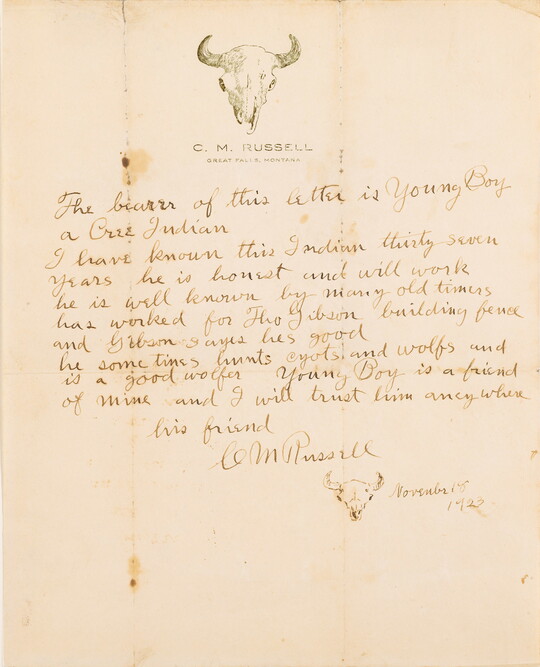 C. M. RUSSELL
GREAT FALLS, MONTANA
The bearer of this letter is Young Boy
a Cree Indian
I have known this Indian thirty seven
years he is honest and will work
he is well known by many old timers
has worked for Tho Gibson building fence
and Gibson sayes hes good
he some times hunts cyots and wolfs and
is a good wolfer Young Boy is a friend
of mine and I will trust him aney where
his friend
C M Russell
1923